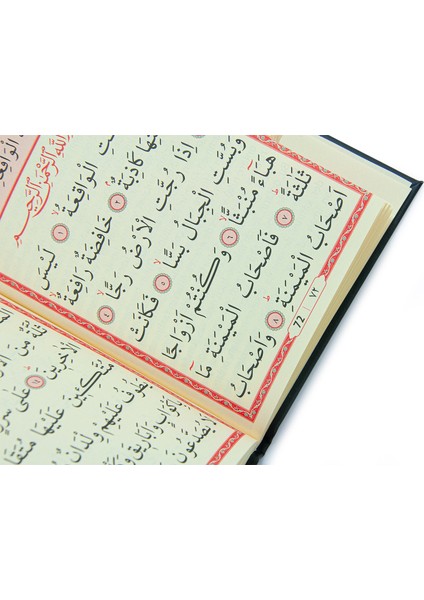 الْوَاقِعَةِ
اللّٰهِ الرَّحْمٰنِ الرَّحِيمِ
الْوَاقِعَةُ ١ لَيْسَ
كَاذِبَةٌ ٢ خَافِضَةٌ رَافِعَةٌ
اِذَا رُجَّتِ الْاَرْضُ رَجًّا ٤
وَبُسَّتِ الْجِبَالُ بَسًّا ٥ فَكَانَتْ
هَبَاءً مُنْبَثًّا ٦ وَكُنْتُمْ اَزْوَاجًا
ثَلٰثَةً ٧ فَاَصْحَابُ الْمَيْمَنَةِ مَا
اَصْحَابُ الْمَيْمَنَةِ ٨ وَاَصْحَابُ
72 ٧٢
مِنَ
الْاٰخِرِينَ ١٤ عَلٰى
مُتَّكِئِينَ عَلَيْهَا
عَلَيْهِمْ وِلْدَانٌ
وَاَبَارِيقَ
لَا يُصَدَّعُونَ